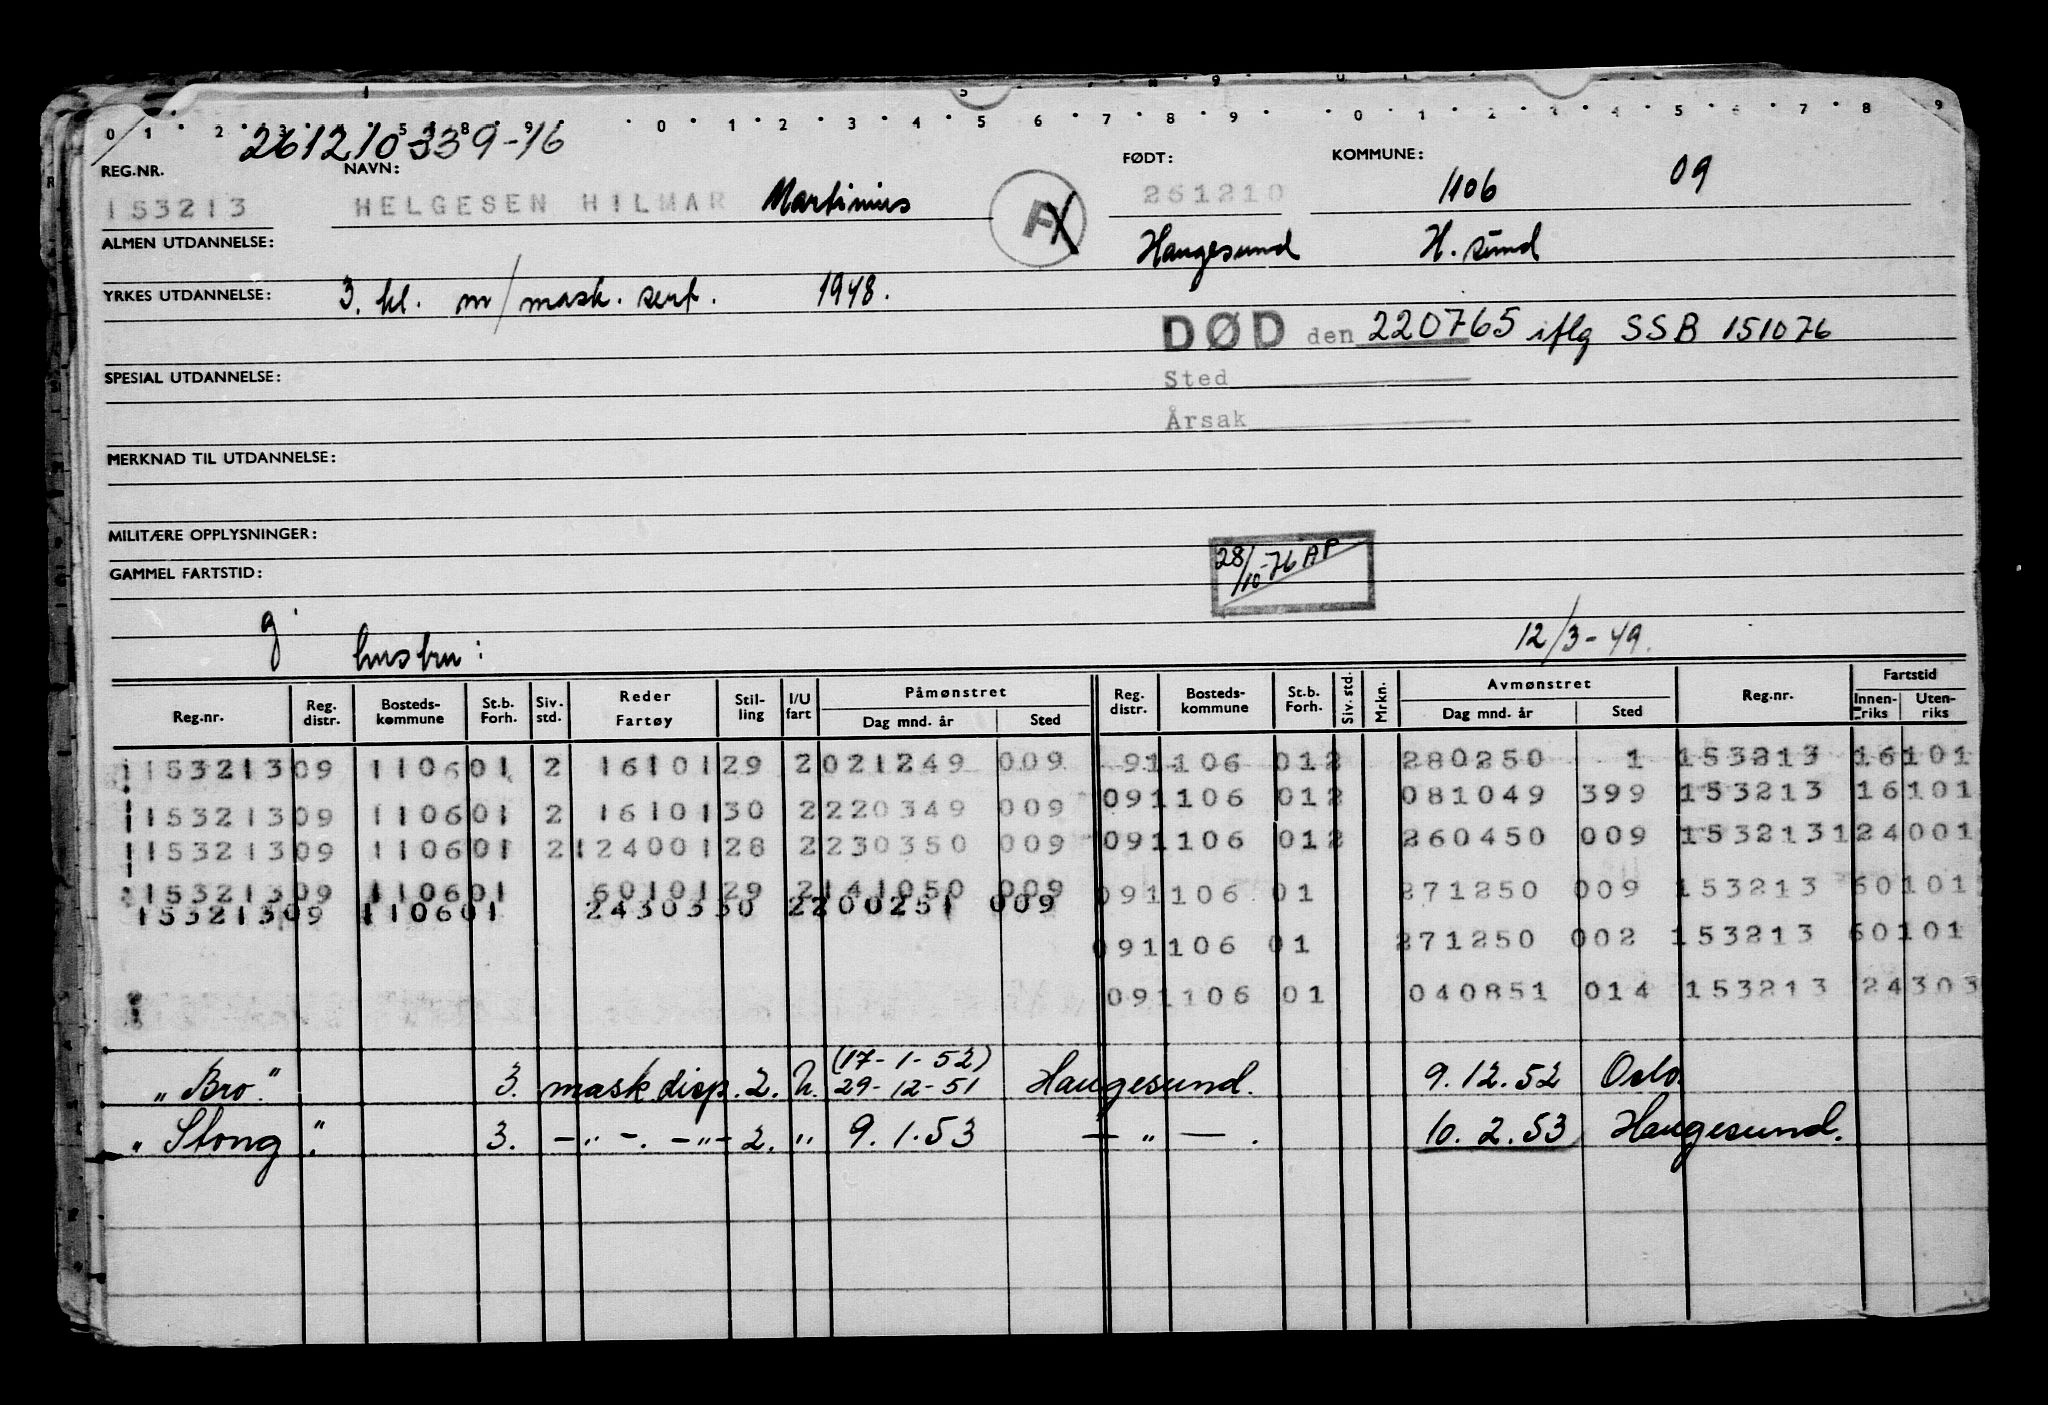 0 1 2 3 5 8 9 0 1 2 3 4 5 6 7 8 9 0 1 2 3 4 5 6 7 8 9
261210-339-16
REG.NR. NAVN: FØDT: KOMMUNE:
153213 HELGESEN HILMAR Martinius F 261210 1106 09
ALMEN UTDANNELSE: Haugesund H. sund
YRKES UTDANNELSE: 3. kl. m/mask. sert. 1948.
DØD den 220765 iflg SSB 151076
SPESIAL UTDANNELSE: Sted
Årsak
MERKNAD TIL UTDANNELSE:
MILITÆRE OPPLYSNINGER:
28/10-76 AP
GAMMEL FARTSTID:
g hustru: 12/3-49.
Reg.nr. Reg. distr. Bosteds-kommune St.b. Forh. Siv. std. Reder Fartøy Stil-ling I/U fart Påmønstret Dag mnd. år Sted Reg. distr. Bosteds-kommune St.b. Forh. Siv. std. Mrkn. Avmønstret Dag mnd. år Sted Reg.nr. Fartstid Innen-riks Uten-riks
153213 09 1106 01 2 16101 29 2 021249 009 91106 012 280250 1 153213 16101
153213 09 1106 01 2 16101 30 2 220349 009 091106 012 081049 399 153213 16101
153213 09 1106 01 2 124001 28 2 230350 009 091106 012 260450 009 153213 124001
153213 09 1106 01 60101 29 2 141050 009 091106 01 271250 009 153213 60101
153213 09 1106 01 24303 30 2 200251 009
091106 01 271250 002 153213 60101
091106 01 040851 014 153213 24303
(17-1-52)
"Bro." 3. mask disp. 2. U. 29-12-51 Haugesund. 9.12.52 Oslo.
"Stong". 3. -"-. -"- 2. " 9.1.53 -"-. 10.2.53 Haugesund.